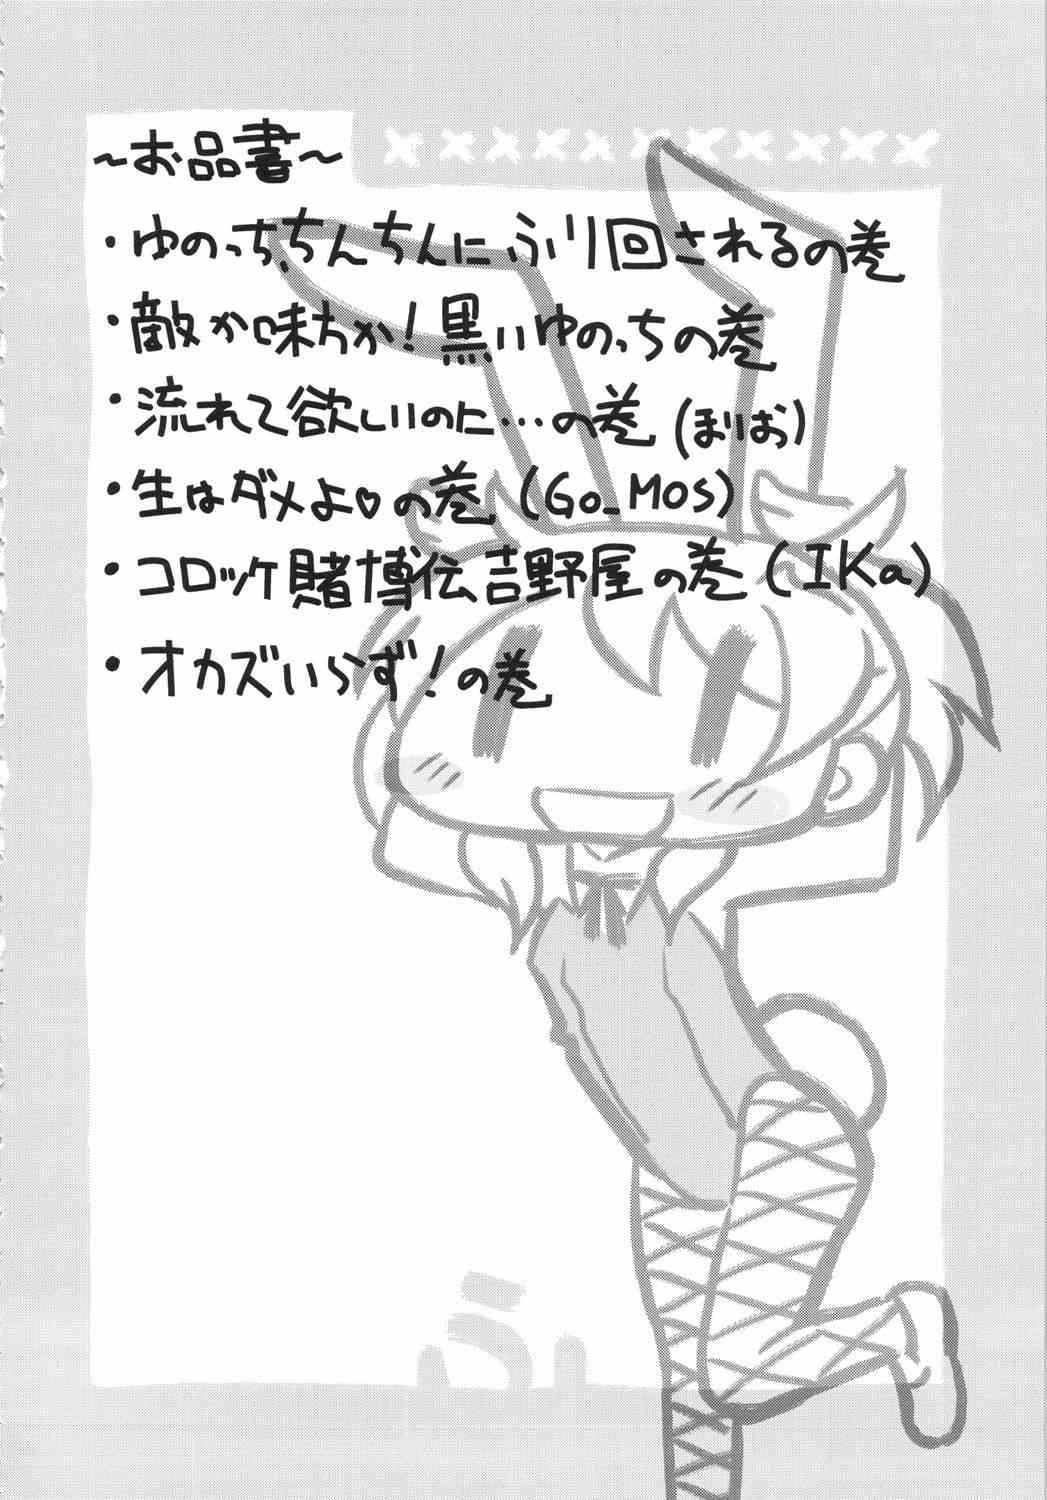 〜お品書〜
・ゆのっち、ちんちんにふり回されるの巻
・敵か味方か!黒いゆのっちの巻
・流れて欲しいのに…の巻(まりお)
・生はダメよ♡の巻(Go_MOS)
・コロッケ賭博伝吉野屋の巻(IKa)
・オカズいらず!の巻